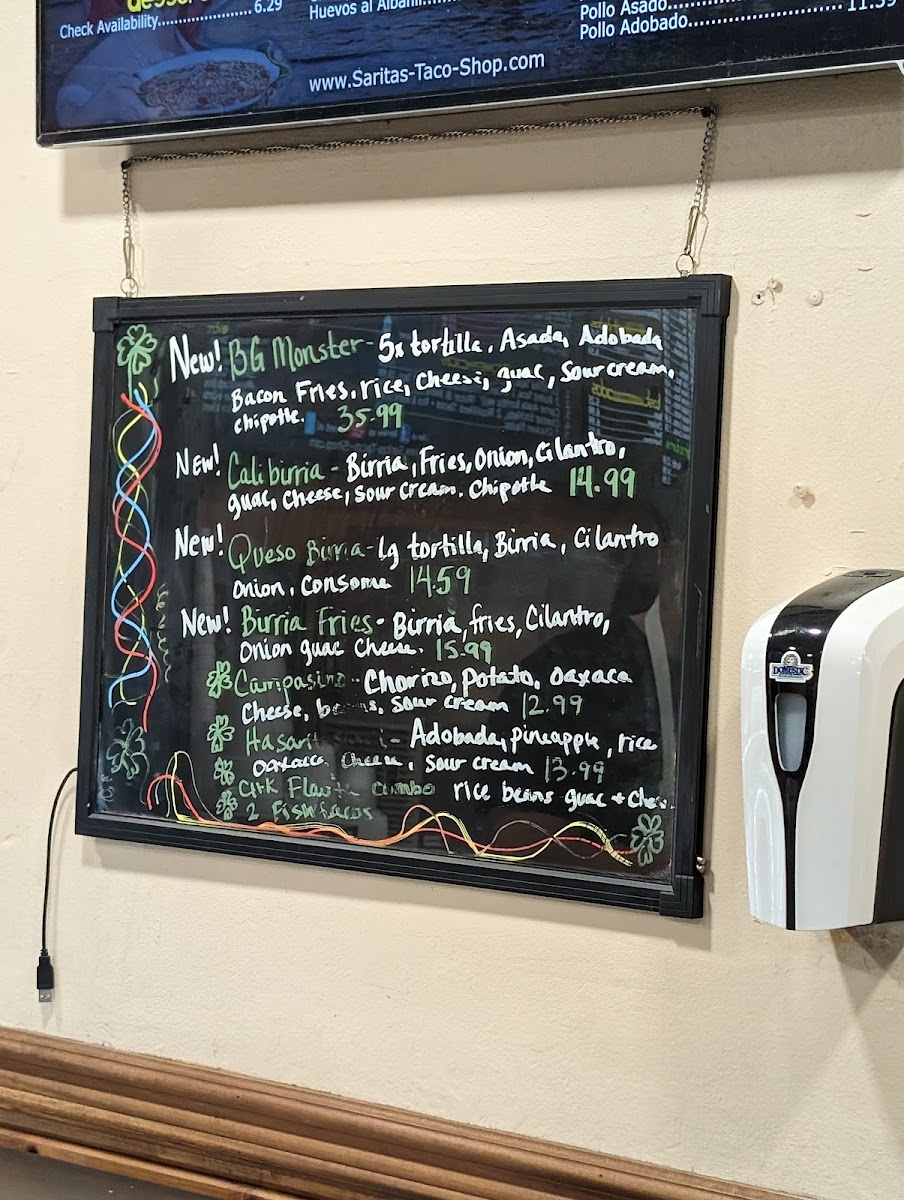 Check Availability..................6.29
Huevos al Albañil
Pollo Asado
Pollo Adobado
www.Saritas-Taco-Shop.com
New! BG Monster - 5x tortilla, Asada, Adobada
Bacon Fries, rice, cheese, guac, sour cream,
chipotle. 35.99
New! Calibirria - Birria, Fries, Onion, Cilantro,
guac, cheese, sour cream. Chipotle 14.99
New! Queso Birria - Lg tortilla, Birria, Cilantro
Onion, Consome 14.59
New! Birria Fries - Birria, fries, Cilantro,
Onion guac Cheese. 15.99
Campasino - Chorizo, Potato, Oaxaca
Cheese, beans, sour cream 12.99
Adobada, pineapple, rice
Oaxaca cheese, sour cream 13.99
combo rice beans guac + Ches
2 Fish tacos
DOMESTIC